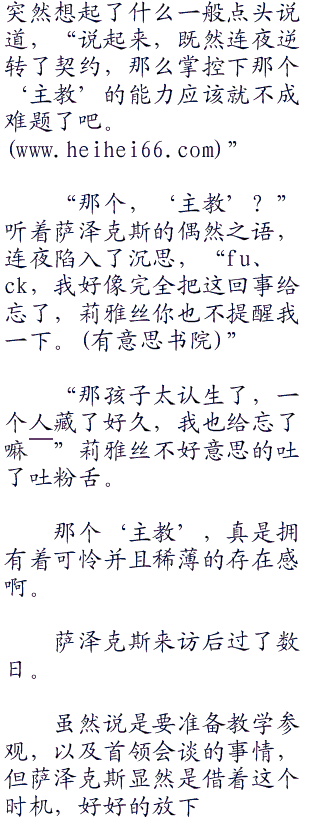 突然想起了什么一般点头说
道，“说起来，既然连夜逆
转了契约，那么掌控下那个
‘主教’的能力应该就不成
难题了吧。
(www.heihei66.com)”
“那个，‘主教’？”
听着萨泽克斯的偶然之语，
连夜陷入了沉思，“fu、
ck，我好像完全把这回事给
忘了，莉雅丝你也不提醒我
一下。(有意思书院)”
“那孩子太认生了，一
个人藏了好久，我也给忘了
嘛——”莉雅丝不好意思的吐
了吐粉舌。
那个‘主教’，真是拥
有着可怜并且稀薄的存在感
啊。
萨泽克斯来访后过了数
日。
虽然说是要准备教学参
观，以及首领会谈的事情，
但萨泽克斯显然是借着这个
时机，好好的放下